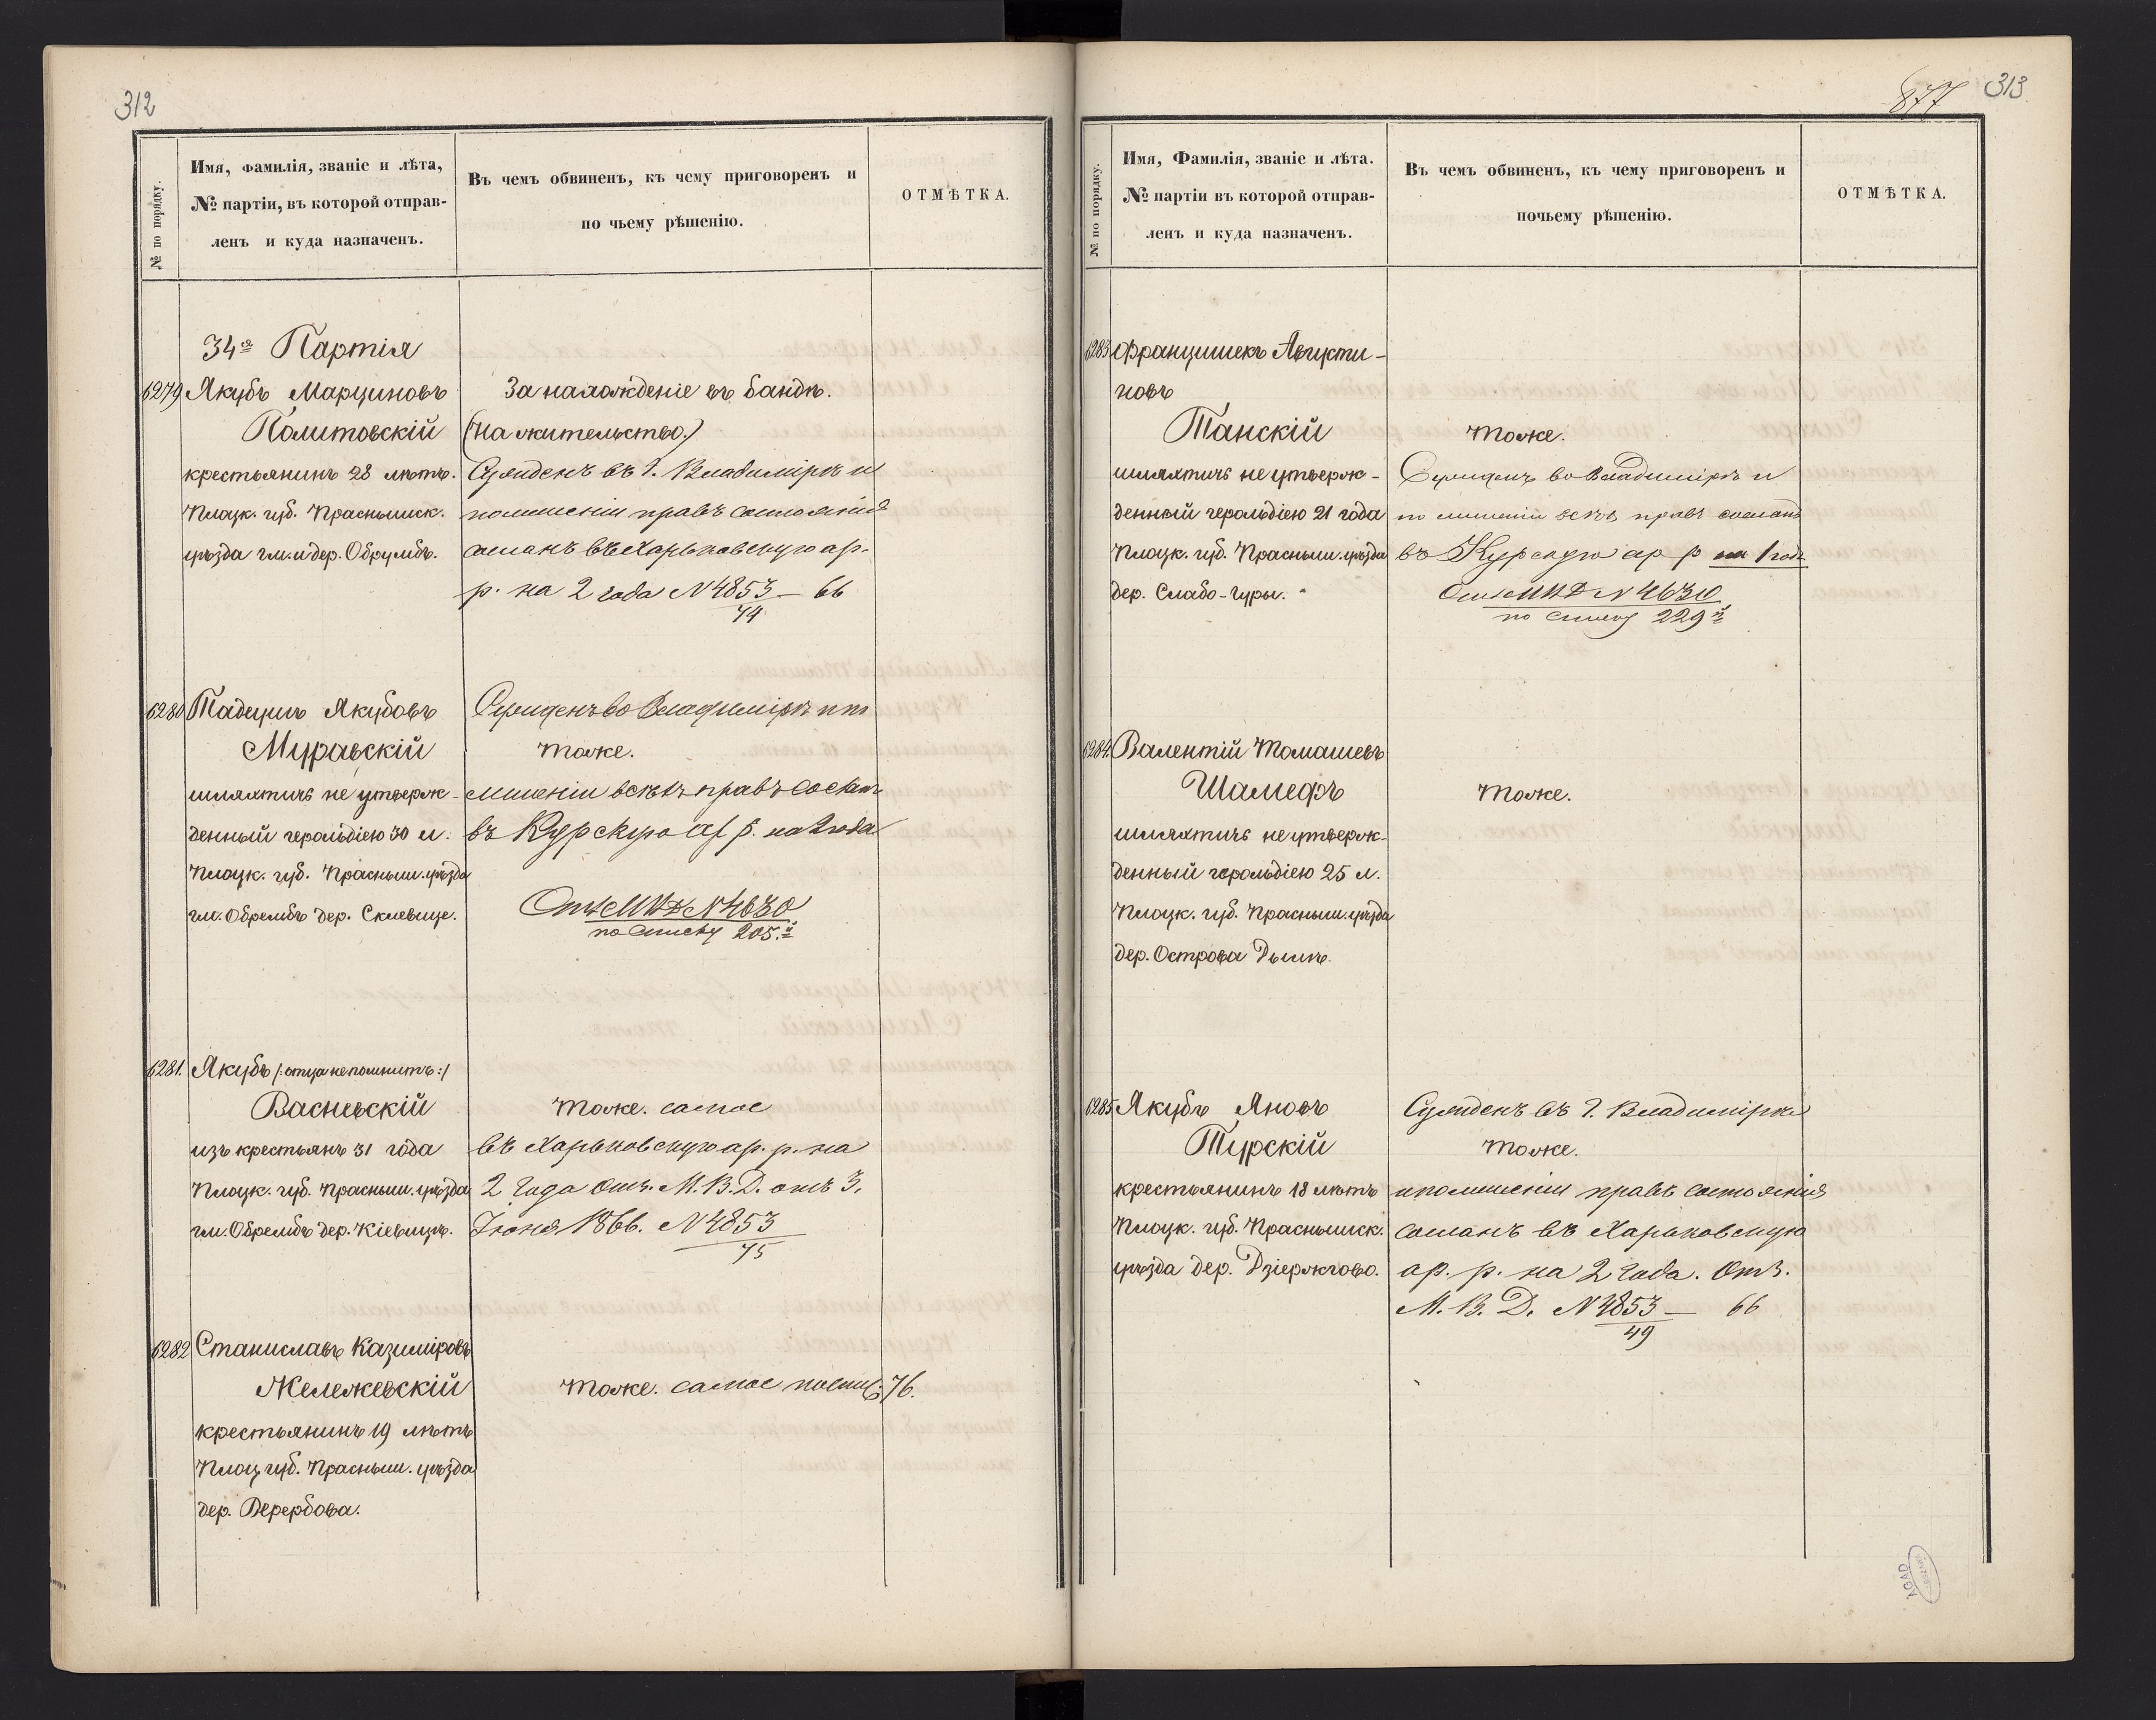 312
№ по порядку.
Имя, Фамилія, званіе и лѣта,
№ партіи, въ которой отправ-
ленъ и куда назначенъ.
Въ чемъ обвиненъ, къ чему приговоренъ и
по чьему рѣшенію.
ОТМѢТКА.
34я Партія
6279 Якубъ Марциновъ
Политовскій
крестьянинъ 28 лѣтъ.
Плоцк. губ. Праснышск.
уѣзда гм. и дер. Обрумбъ.
За нахожденіе въ бандѣ.
(На жительство.)
Сужденъ въ г. Владимірѣ и
по лишеніи правъ состоянія
сосланъ въ Харьковскую ар.
р. на 2 года N 4853 — 66
74
6280 Тадеушъ Якубовъ
Муравскій
шляхтичъ не утверж-
денный герольдіею 30 л.
Плоцк. губ. Прасныш. уѣзда
гм. Обрембъ дер. Склевице.
Сужденъ во Владимірѣ и по
тоже.
лишеніи всѣхъ правъ сосланъ
въ Курскую ар р. на 2 года
Отз МВД N 4630
по списку 205.й
6281. Якубъ /:отца не помнитъ:/
Васневскій
изъ крестьянъ 31 года
Плоцк. губ. Прасныш. уѣзда
гм. Обрембъ дер. Кіевицъ.
тоже. самое
въ Харьковскую ар. р. на
2 года Отз. М. В. Д. отъ 3.
Іюня 1866. N 4853
75
6282 Станиславъ Казиміровъ
Жележевскій
крестьянинъ 19 лѣтъ
Плоц губ. Прасныш. уѣзда
дер.
тоже. самое по спис: 76.
877 313
№ по порядку.
Имя, Фамилія, званіе и лѣта.
№ партіи въ которой отправ-
ленъ и куда назначенъ.
Въ чемъ обвиненъ, къ чему приговоренъ и
почьему рѣшенію.
ОТМѢТКА.
6283 Францишекъ Августи-
новъ
Танскій
шляхтичъ не утверж-
денный герольдіею 21 года
Плоцк. губ. Прасныш. уѣзда
дер. Слабо-Гуры.
тоже.
Сужденъ во Владимірѣ и
по лишеніи всѣхъ правъ сосланъ
въ Курскую ар р на 1 годъ
Отз МВД N 4630
по списку 229й
6284. Валентій Томашевъ
Шамефъ
шляхтичъ не утверж-
денный герольдіею 25 л.
Плоцк. губ. Прасныш. уѣзда
дер. Острова
тоже.
6285 Якубъ Яновъ
Турскій
крестьянинъ 18 лѣтъ
Плоцк. губ. Праснышск.
уѣзда дер. Дзіержгово.
Сужденъ въ г. Владимірѣ
тоже.
и по лишеніи правъ состоянія
сосланъ въ Харьковскую
ар. р. на 2 года. Отз.
М. В. Д. N 4853 — 66
49
AGAD